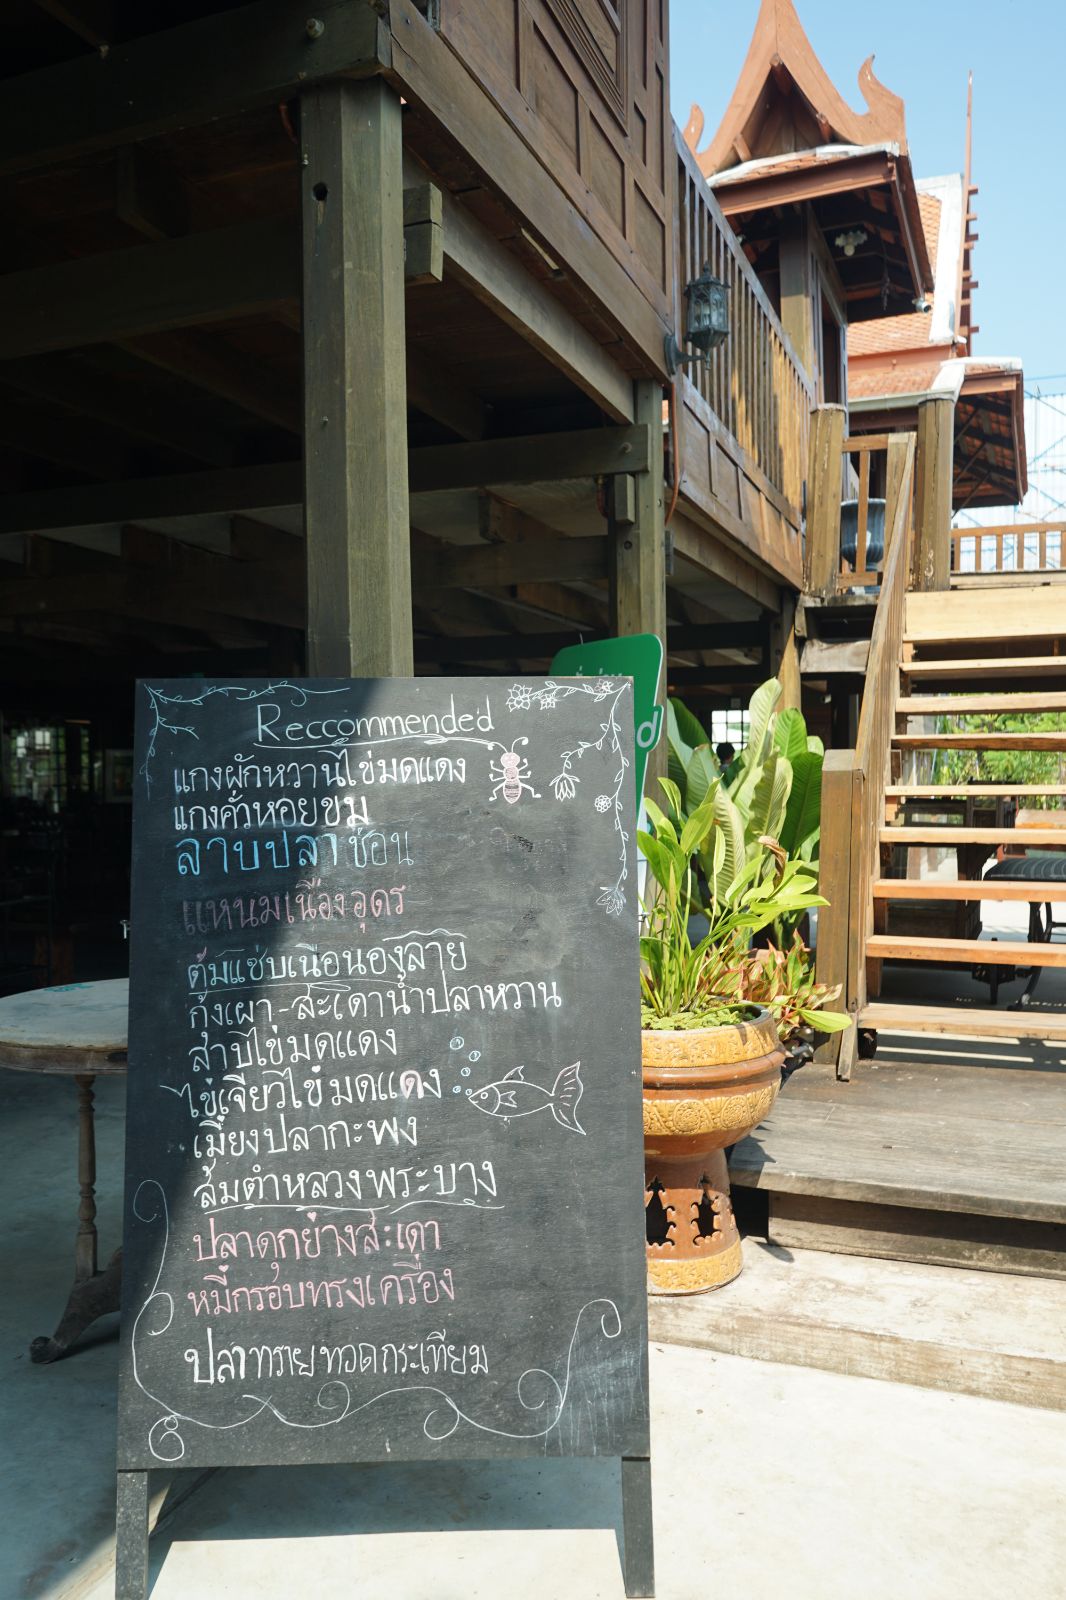 Reccommended
แกงผักหวานไข่มดแดง
แกงคั่วหอยขม
ลาบปลาช่อน
แหนมเนืองอุดร
ต้มแซ่บเนื้อน่องลาย
กุ้งเผา-สะเดาน้ำปลาหวาน
ลาบไข่มดแดง
ไข่เจียวไข่มดแดง
เมี่ยงปลากะพง
ส้มตำหลวงพระบาง
ปลาดุกย่างสะเดา
หมี่กรอบทรงเครื่อง
ปลาทรายทอดกระเทียม